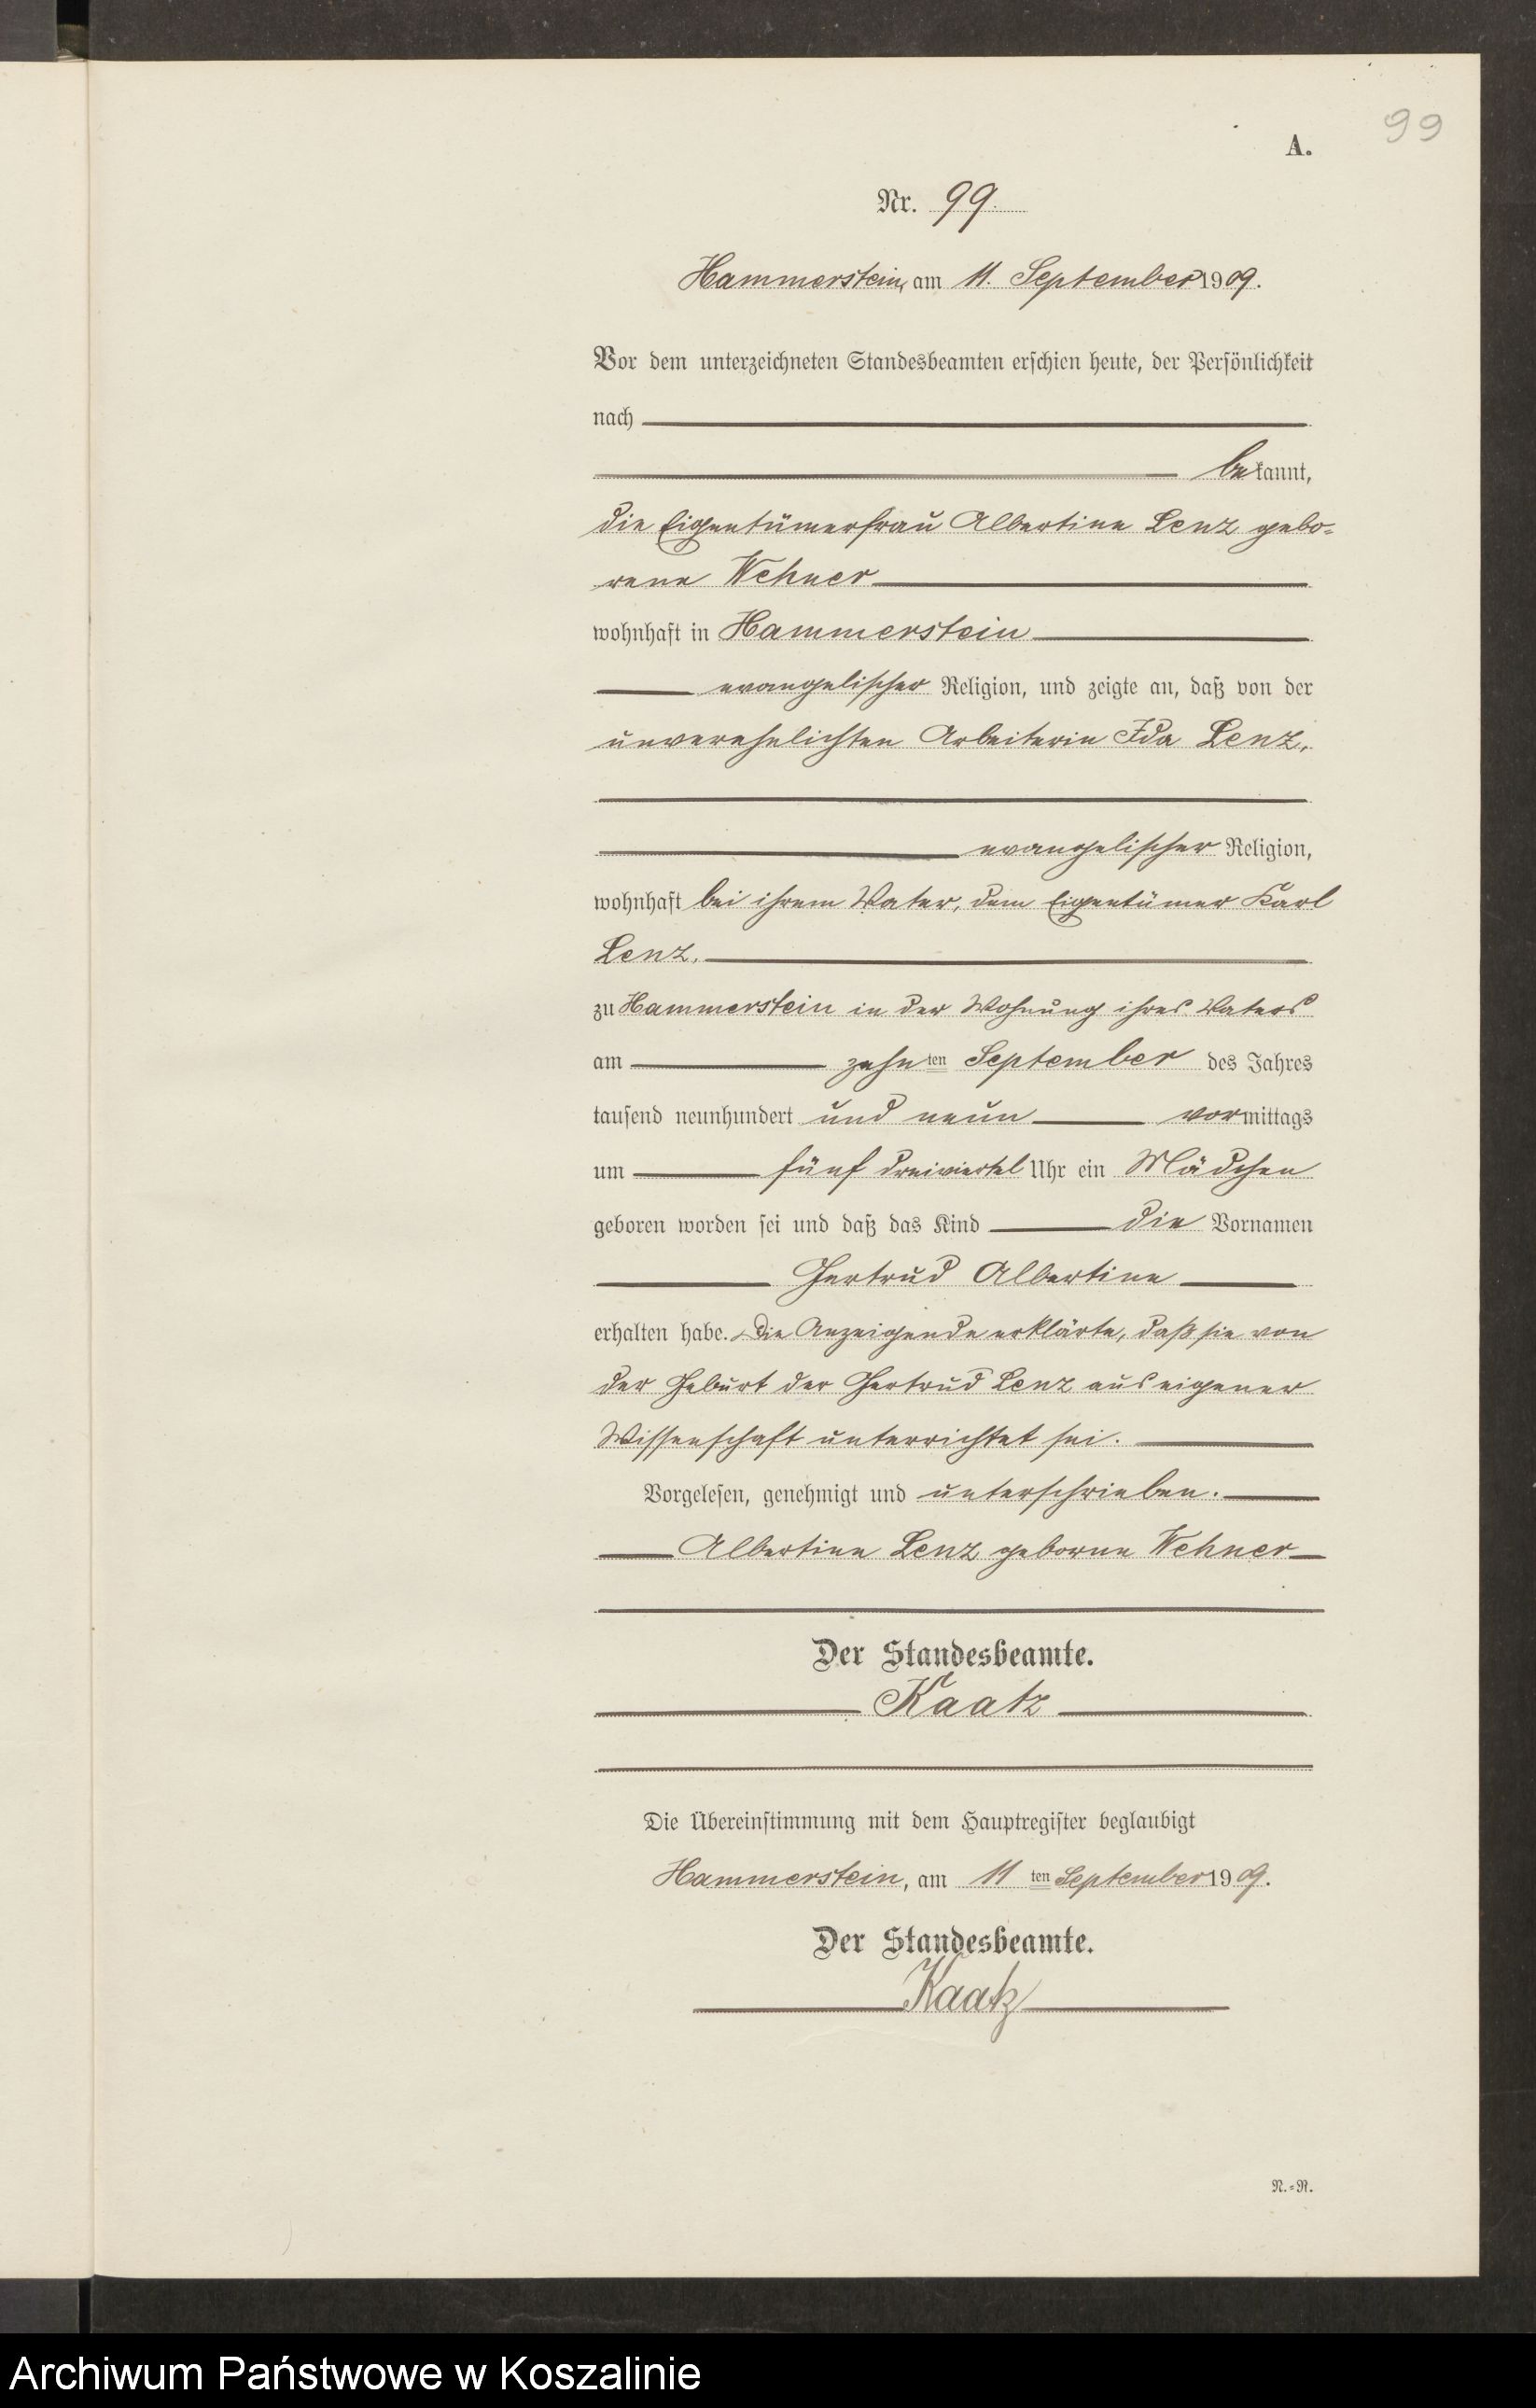 99
A.
Nr. 99.
Hammerstein, am 11. September 1909.
Vor dem unterzeichneten Standesbeamten erschien heute, der Persönlichkeit
nach
bekannt,
die Eigentümerfrau Albertine Lenz gebo-
rene Wehner
wohnhaft in Hammerstein
evangelischer Religion, und zeigte an, daß von der
unverehelichten Arbeiterin Ida Lenz,
evangelischer Religion,
wohnhaft bei ihrem Vater, dem Eigentümer Karl
Lenz,
zu Hammerstein in der Wohnung ihres Vaters
am zehnten September des Jahres
tausend neunhundert und neun vormittags
um fünf dreiviertel Uhr ein Mädchen
geboren worden sei und daß das Kind die Vornamen
Gertrud Albertine
erhalten habe. Die Anzeigende erklärte, daß sie von
der Geburt der Gertrud Lenz aus eigener
Wissenschaft unterrichtet sei.
Vorgelesen, genehmigt und unterschrieben.
Albertine Lenz geborne Wehner
Der Standesbeamte.
Kaatz
Die Übereinstimmung mit dem Hauptregister beglaubigt
Hammerstein, am 11ten September 1909.
Der Standesbeamte.
Kaatz
N.=R.
Archiwum Państwowe w Koszalinie